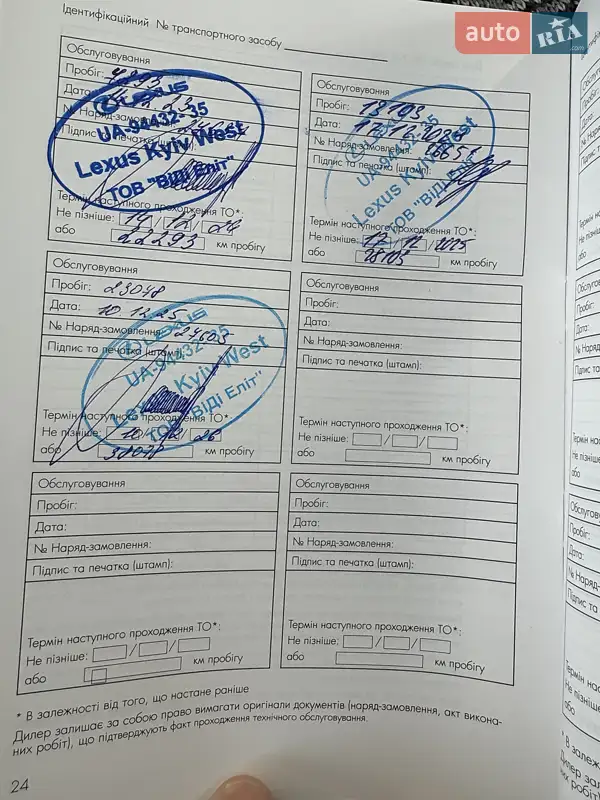 auto RIA .com
Ідентифікаційний № транспортного засобу
Обслуговування
Пробіг:
Дата: 23
№ Наряд-замовлення:
Підпис та печатка (штамп):
LEXUS
UA-94432-35
Lexus Kyiv West
ТОВ "ВІДІ Еліт"
Термін наступного проходження ТО*:
Не пізніше: 14 / 12 / 24
або 22293 км пробігу
Обслуговування
Пробіг: 13103
Дата: 17.12.
№ Наряд-замовлення:
Підпис та печатка (штамп):
Lexus Kyiv West
ТОВ "ВІДІ Еліт"
Термін наступного проходження ТО*:
Не пізніше: 17 / 12 / 2025
або 28103 км пробігу
Обслуговування
Пробіг: 23048
Дата: 10.12.25
№ Наряд-замовлення: 27603
Підпис та печатка (штамп):
LEXUS
UA-94432-35
Lexus Kyiv West
ТОВ "ВІДІ Еліт"
Термін наступного проходження ТО*:
Не пізніше: 10 / 12 / 26
або 38048 км пробігу
Обслуговування
Пробіг:
Дата:
№ Наряд-замовлення:
Підпис та печатка (штамп):
Термін наступного проходження ТО*:
Не пізніше: / /
або км пробігу
Обслуговування
Пробіг:
Дата:
№ Наряд-замовлення:
Підпис та печатка (штамп):
Термін наступного проходження ТО*:
Не пізніше: / /
або км пробігу
Обслуговування
Пробіг:
Дата:
№ Наряд-замовлення:
Підпис та печатка (штамп):
Термін наступного проходження ТО*:
Не пізніше: / /
або км пробігу
* В залежності від того, що настане раніше
Дилер залишає за собою право вимагати оригінали документів (наряд-замовлення, акт викона-
них робіт), що підтверджують факт проходження технічного обслуговування.
24